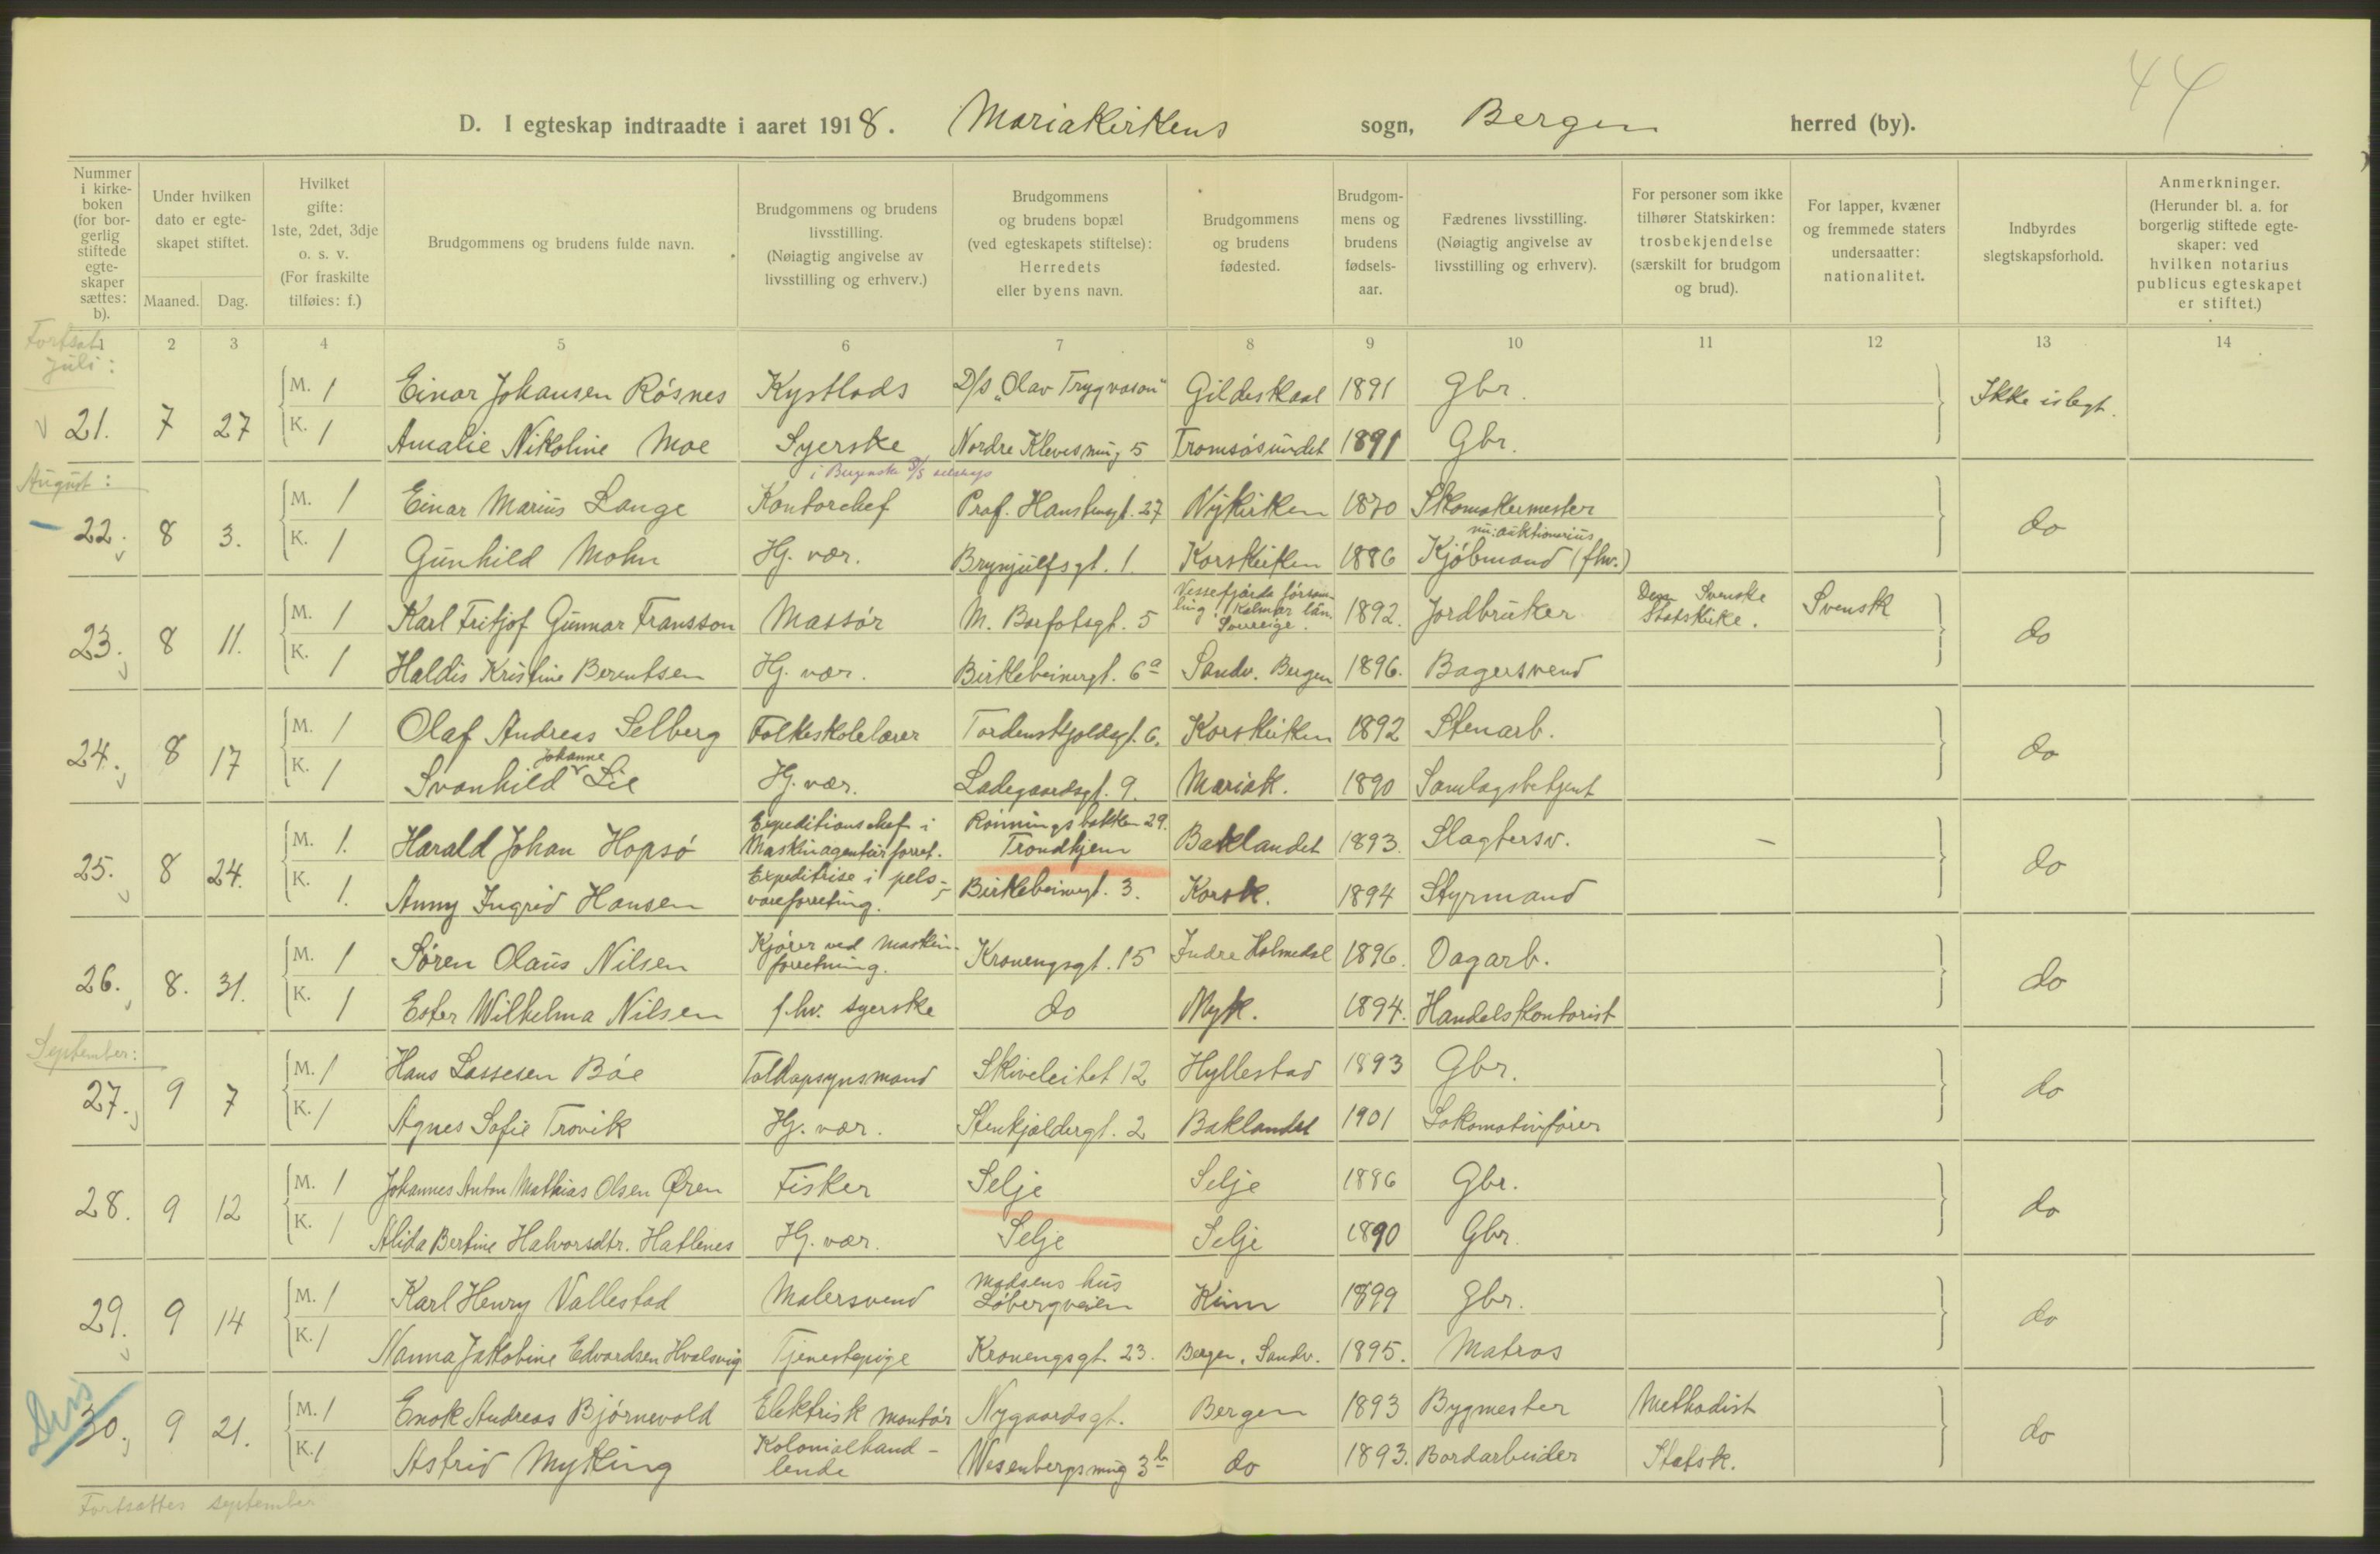 44
D. I egteskap indtraadte i aaret 1918. Mariakirkens sogn, Bergen herred (by).
Nummer i kirke-boken (for bor-gerlig stiftede egte-skaper sættes: b).
Under hvilken dato er egte-skapet stiftet.
Maaned. Dag.
Hvilket gifte: 1ste, 2det, 3dje o. s. v. (For fraskilte tilføies: f.)
Brudgommens og brudens fulde navn.
Brudgommens og brudens livsstilling. (Nøiagtig angivelse av livsstilling og erhverv.)
Brudgommens og brudens bopæl (ved egteskapets stiftelse): Herredets eller byens navn.
Brudgommens og brudens fødested.
Brudgom-mens og brudens fødsels-aar.
Fædrenes livsstilling. (Nøiagtig angivelse av livsstilling og erhverv).
For personer som ikke tilhører Statskirken: trosbekjendelse (særskilt for brudgom og brud).
For lapper, kvæner og fremmede staters undersaatter: nationalitet.
Indbyrdes slegtskapsforhold.
Anmerkninger. (Herunder bl. a. for borgerlig stiftede egte-skaper: ved hvilken notarius publicus egteskapet er stiftet.)
1 2 3 4 5 6 7 8 9 10 11 12 13 14
Fortsat
juli:
21. 7 27 M. 1 Einar Johansen Røsnes Kystlods D/s "Olav Trygvason" Gildeskaal 1891 Gbr. Ikke islegt.
K. 1 Amalie Nikoline Moe Syerske Nordre Klevesmug 5 Tromsøsundet 1891 Gbr.
August:
i Bergenske D/S selskap
22. 8 3. M. 1 Einar Marius Lange Kontorchef Prof. Hansteengt. 27 Nykirken 1870 Skomakermester do
nu: auktionarius
K. 1 Gunhild Mohn Hj. vær. Brynjulfsgt. 1. Korskirken 1886 Kjøbmand (fhv.)
23. 8 11. M. 1 Karl Fritjof Gunnar Fransson Massør M. Barfotsgt. 5 Vessefjärda försam-ling, Kalmar län Sverige. 1892. Jordbruker Den Svenske Statskirke. Svensk do
K. 1 Haldis Kristine Berentsen Hj. vær. Birkebeinergt. 6a Sandv. Bergen 1896. Bagersvend
24. 8 17 M. 1 Olaf Andreas Selberg Folkeskolelærer Tordenskjoldsgt. 6. Korskirken 1892 Stenarb. do
Johanne
K. 1 Svanhild Lie Hj. vær. Ladegaardsgt. 9. Mariak. 1890 Samlagsbetjent
25. 8 24. M. 1. Harald Johan Hopsø Expeditionschef i Maskinagenturforret. Rønningsbakken 29. Trondhjem Baklandet 1893. Slagtersv. – do
K. 1. Anny Ingrid Hansen Expeditrise i pels-vareforretning. Birkebeinergt. 3. Korsk. 1894 Styrmand
26. 8. 31. M. 1 Søren Olaus Nilsen Kjører ved maskin-forretning. Kronengsgt. 15 Indre Holmedal 1896. Dagarb. do
K. 1 Ester Wilhelma Nilsen fhv. syerske do Nyk. 1894. Handelskontorist
September:
27. 9 7 M. 1 Hans Lassesen Bøe Toldopsynsmand Skiveleitet 12 Hyllestad 1893 Gbr. do
K. 1 Agnes Sofie Trovik Hj. vær. Stenkjeldergt. 2 Baklandet 1901 Lokomotivfører
28. 9 12 M. 1 Johannes Anton Mathias Olsen Øren Fisker Selje Selje 1886 Gbr. do
K. 1 Alida Bertine Halvorsdtr. Hatlenes Hj. vær. Selje Selje 1890 Gbr.
29. 9 14 M. 1 Karl Henry Vallestad Malersvend Madsens hus Løbergveien Kinn 1899 Gbr. do
K. 1 Nanna Jakobine Edvardsen Hvalsvig Tjenestepige Kronengsgt. 23. Bergen, Sandv. 1895. Matros
30. 9 21. M. 1 Enok Andreas Bjørnevold Elektrisk montør Nygaardsgt. Bergen 1893 Bygmester Methodist do
K. 1 Astrid Myking Kolonialhand-lende Wesenbergsmug 3b do 1893. Bordarbeider Statsk.
Fortsættes september